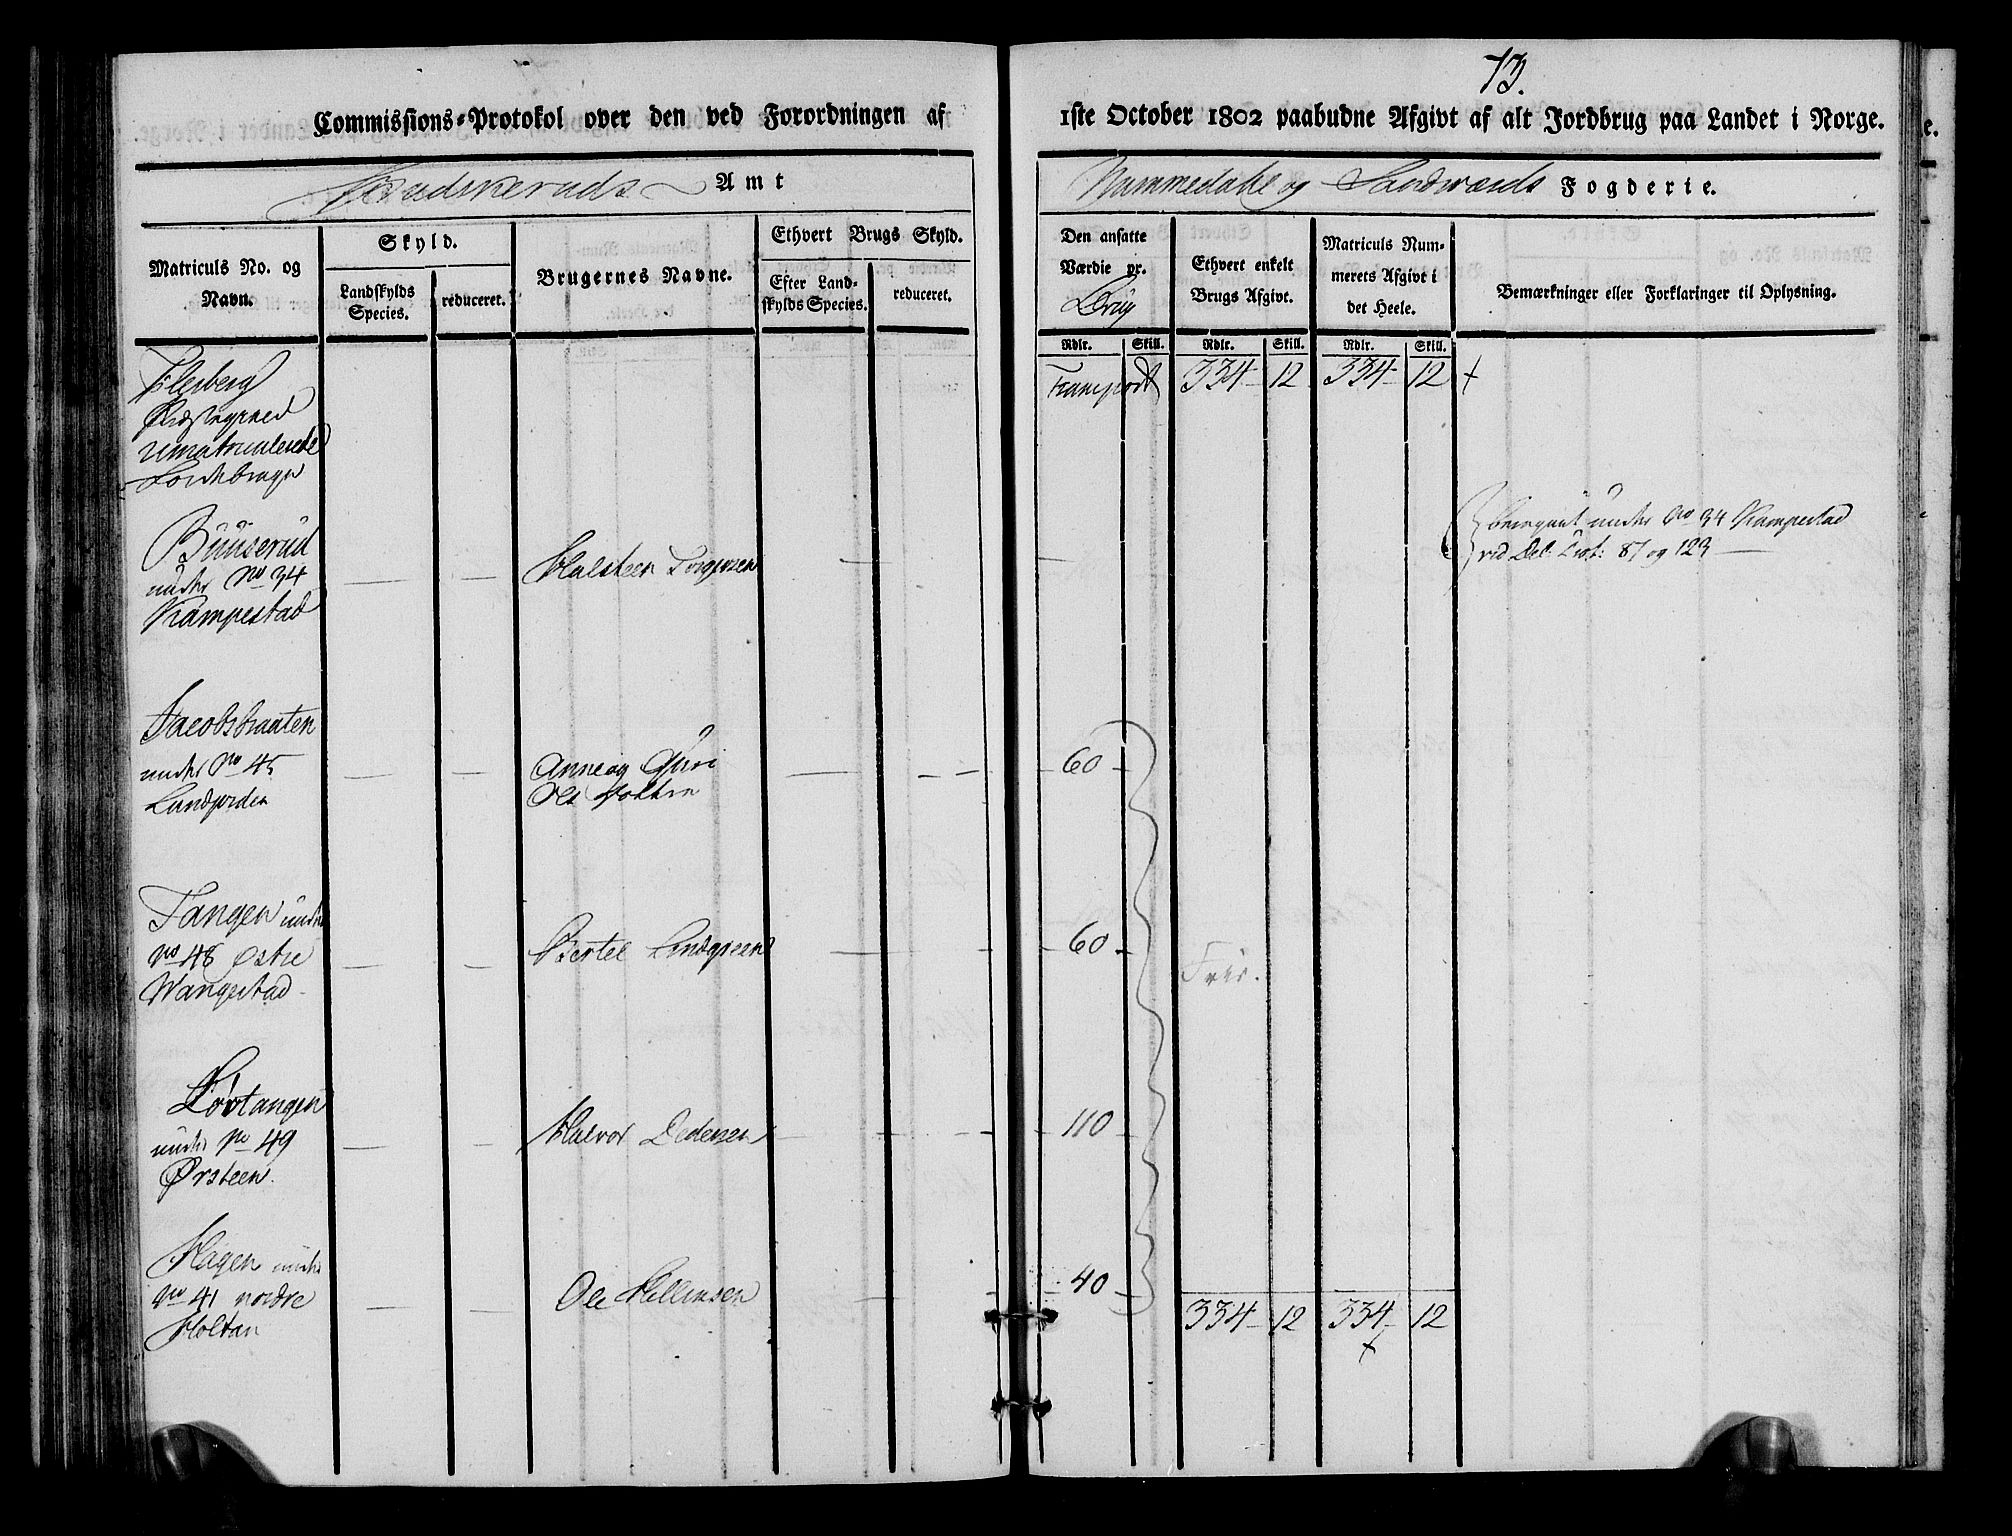 73.
Commissions-Protokol over den ved Forordningen af 1ste October 1802 paabudne Afgivt af alt Jordbrug paa Landet i Norge.
Budskeruds Amt
Nummedahl og Sandsværds Fogderie.
Matriculs No. og Navn.
Skyld.
Landskylds Species.
reduceret.
Brugernes Navne.
Ethvert Brugs Skyld.
Efter Landskylds Species.
reduceret.
Den ansatte Værdie pr. Brug
Ethvert enkelt Brugs Afgivt.
Matriculs Nummerets Afgivt i det Heele.
Bemærkninger eller Forklaringer til Oplysning.
Rdlr. Skill. Rdlr. Skill. Rdlr. Skill.
Transport 334 12 334 12 +
Flesberg
Præstegield
umatriculerede
Jordebruge
Buuserud
under No 34
Kampestad
Halsteen Torgersen
under No 34 Kampestad
vid Del. Prot: 87 og 123
Jacobsbraaten
under No 45
Anne og Guri
60
Tangen under
No 48 østre
Wangestad
Bertel Lindgreen
60
Frie.
Løvtangen
under No 49
Ørsteen
Halvor Pedersen
110
Hagen under
No 41 nordre
Holtan
Ole Hellensen
40
334 12 334 12
+